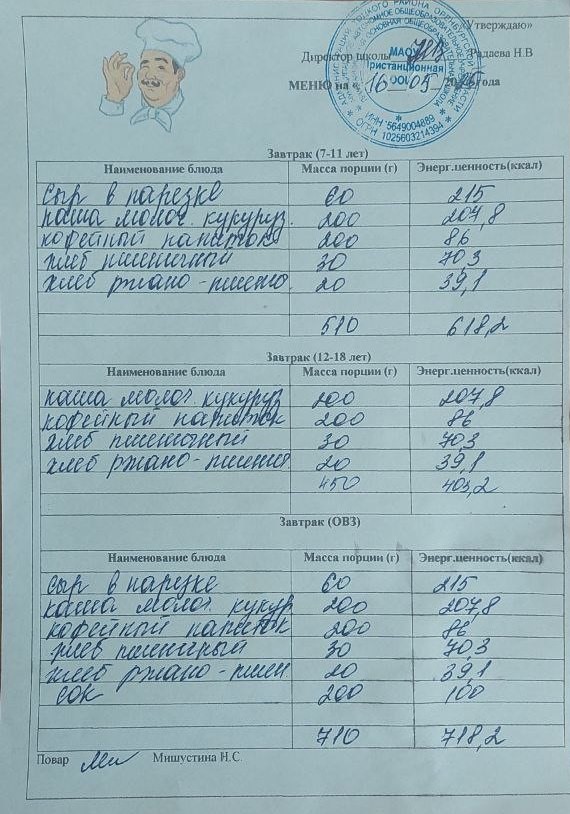 «Утверждаю»
Директор школы Радаева Н.В
МЕНЮ на « 16 » 05 2025 года
МАОУ
Пристанционная
ООШ
* ИНН 5649004889 *
* ОГРН 1025603214394 *
Завтрак (7-11 лет)
Наименование блюда Масса порции (г) Энерг.ценность(ккал)
сыр в нарезке 60 215
каша молоч. кукуруз. 200 207,8
кофейный напиток 200 86
хлеб пшеничный 30 70,3
хлеб ржано-пшено. 20 39,1
510 618,2
Завтрак (12-18 лет)
Наименование блюда Масса порции (г) Энерг.ценность(ккал)
каша молоч кукуруз 200 207,8
кофейный напиток 200 86
хлеб пшеничный 30 70,3
хлеб ржано-пшенич 20 39,1
450 403,2
Завтрак (ОВЗ)
Наименование блюда Масса порции (г) Энерг.ценность(ккал)
сыр в нарезке 60 215
каша молоч. кукур 200 207,8
кофейный напиток 200 86
хлеб пшеничный 30 70,3
хлеб ржано-пшен. 20 39,1
сок 200 100
710 718,2
Повар Мишустина Н.С.